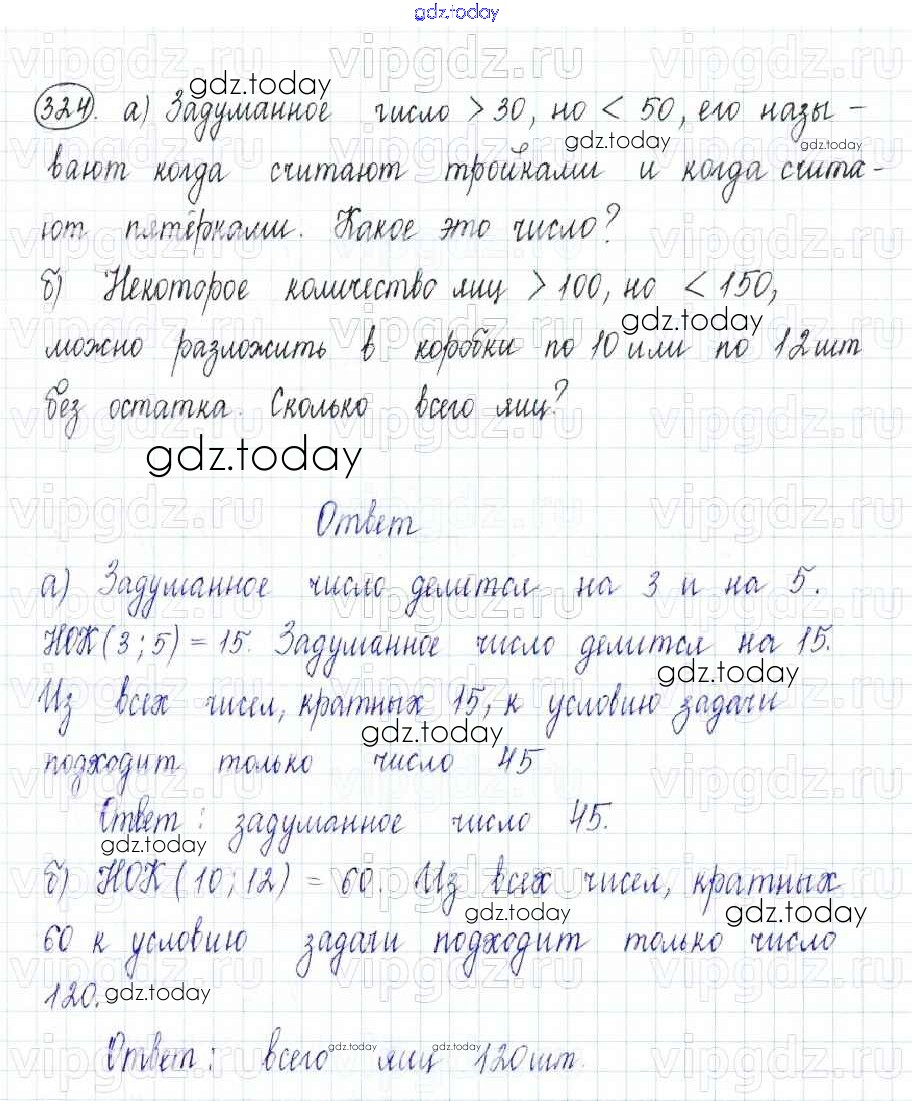 gdz.today
324. а) Задуманное число > 30, но < 50, его назы-
вают когда считают тройками и когда счита-
ют пятёрками. Какое это число?
б) Некоторое количество яиц > 100, но < 150,
можно разложить в коробки по 10 или по 12 шт
без остатка. Сколько всего яиц?
gdz.today
Ответ
а) Задуманное число делится на 3 и на 5.
НОК (3; 5) = 15. Задуманное число делится на 15.
Из всех чисел, кратных 15, к условию задачи
подходит только число 45
Ответ: задуманное число 45.
б) НОК (10; 12) = 60. Из всех чисел, кратных
60 к условию задачи подходит только число
120.
Ответ: всего яиц 120 шт.